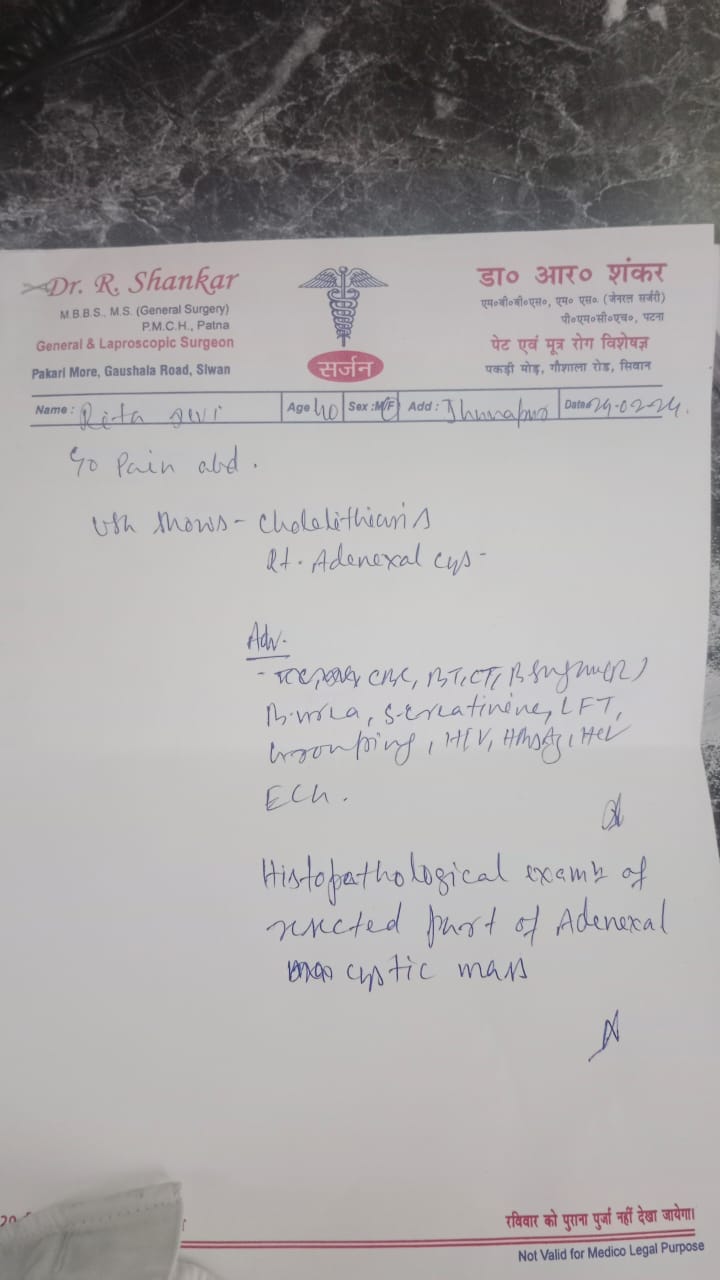 Dr. R. Shankar
M.B.B.S., M.S. (General Surgery)
P.M.C.H., Patna
General & Laproscopic Surgeon
Pakari More, Gaushala Road, Siwan
सर्जन
डा० आर० शंकर
एम०बी०बी०एस०, एम० एस० (जेनरल सर्जरी)
पी०एम०सी०एच०, पटना
पेट एवं मूत्र रोग विशेषज्ञ
पकड़ी मोड़, गौशाला रोड, सिवान
Name : Rita Devi Age 40 Sex : M/F Add : Date 29-02-24.
Pain abd.
USG shows - Cholelithiasis
Rt. Adenexal cys-
Adv.
- CBC, BT, CT, B sugar (R)
B. urea, S. creatinine, LFT,
Grouping, HIV, HBsAg, HCV
ECG.
Histopathological exam of
resected part of Adenexal
cystic mass
रविवार को पुराना पुर्जा नहीं देखा जायेगा।
Not Valid for Medico Legal Purpose